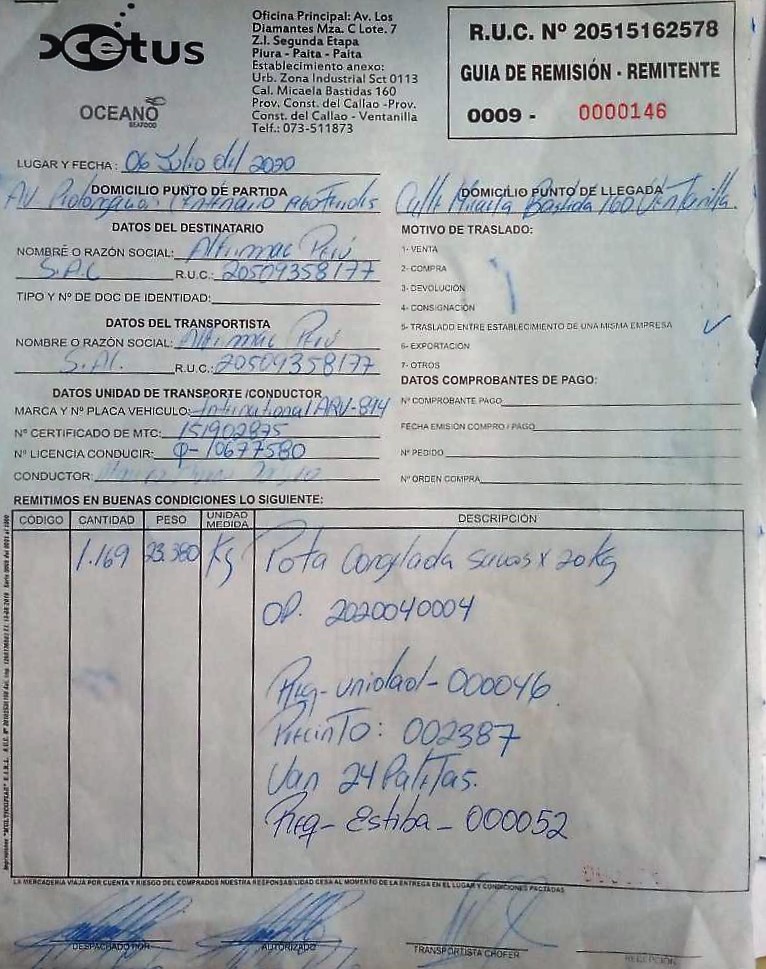 Cetus
OCEANO
SEAFOOD
Oficina Principal: Av. Los
Diamantes Mza. C Lote. 7
Z.I. Segunda Etapa
Piura - Paita - Paita
Establecimiento anexo:
Urb. Zona Industrial Sct 0113
Cal. Micaela Bastidas 160
Prov. Const. del Callao -Prov.
Const. del Callao - Ventanilla
Telf.: 073-511873
R.U.C. Nº 20515162578
GUIA DE REMISIÓN - REMITENTE
0009 - 0000146
LUGAR Y FECHA: 06 Julio del 2020
DOMICILIO PUNTO DE PARTIDA
AV Prolongacion Centenario
DOMICILIO PUNTO DE LLEGADA
Calle Micaela Bastida 160 Ventanilla.
DATOS DEL DESTINATARIO
NOMBRE O RAZÓN SOCIAL: Altimac Perú
S.A.C R.U.C.: 20509358177
TIPO Y Nº DE DOC DE IDENTIDAD:
DATOS DEL TRANSPORTISTA
NOMBRE O RAZÓN SOCIAL: Altimac Perú
S.AC. R.U.C.: 20509358177
DATOS UNIDAD DE TRANSPORTE /CONDUCTOR
MARCA Y Nº PLACA VEHICULO: International ARV-894
Nº CERTIFICADO DE MTC: 151902875
Nº LICENCIA CONDUCIR: Q-10677580
CONDUCTOR:
MOTIVO DE TRASLADO:
1- VENTA
2- COMPRA
3- DEVOLUCIÓN
4- CONSIGNACIÓN
5- TRASLADO ENTRE ESTABLECIMIENTO DE UNA MISMA EMPRESA ✓
6- EXPORTACIÓN
7- OTROS
DATOS COMPROBANTES DE PAGO:
Nº COMPROBANTE PAGO
FECHA EMISIÓN COMPRO / PAGO
Nº PEDIDO
Nº ORDEN COMPRA
REMITIMOS EN BUENAS CONDICIONES LO SIGUIENTE:
CÓDIGO CANTIDAD PESO UNIDAD MEDIDA DESCRIPCIÓN
1.169 23.380 Kg Pota Congelada sacos x 20 Kg
OP. 2020040004
Reg-unidad-000046
Precinto: 002387
Van 24 Paletas.
Reg-Estiba-000052
LA MERCADERIA VIAJA POR CUENTA Y RIESGO DEL COMPRADOS NUESTRA RESPONSABILIDAD CESA AL MOMENTO DE LA ENTREGA EN EL LUGAR Y CONDICIONES PACTADAS
DESPACHADO POR
AUTORIZADO
TRANSPORTISTA CHOFER
RECEPCIÓN